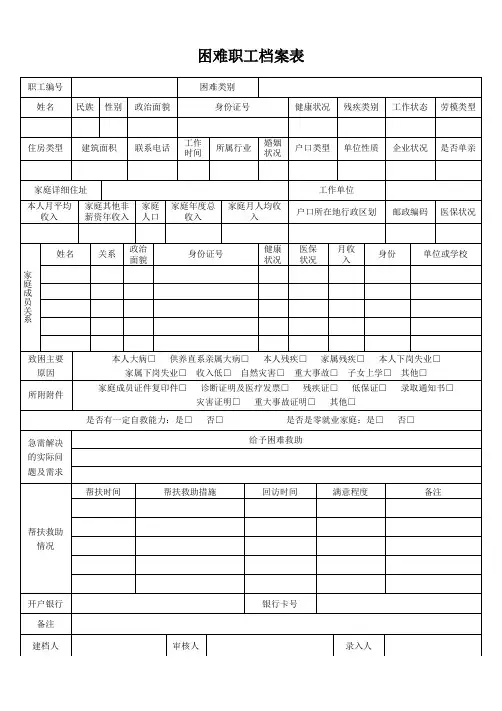 困难职工档案表
职工编号 困难类别
姓名 民族 性别 政治面貌 身份证号 健康状况 残疾类别 工作状态 劳模类型
住房类型 建筑面积 联系电话 工作时间 所属行业 婚姻状况 户口类型 单位性质 企业状况 是否单亲
家庭详细住址 工作单位
本人月平均收入 家庭其他非薪资年收入 家庭人口 家庭年度总收入 家庭月人均收入 户口所在地行政区划 邮政编码 医保状况
家庭成员关系
姓名 关系 政治面貌 身份证号 健康状况 医保状况 月收入 身份 单位或学校
致困主要原因
本人大病□ 供养直系亲属大病□ 本人残疾□ 家属残疾□ 本人下岗失业□
家属下岗失业□ 收入低□ 自然灾害□ 重大事故□ 子女上学□ 其他□
所附附件
家庭成员证件复印件□ 诊断证明及医疗发票□ 残疾证□ 低保证□ 录取通知书□
灾害证明□ 重大事故证明□ 其他□
是否有一定自救能力：是□ 否□ 是否是零就业家庭：是□ 否□
急需解决的实际问题及需求
给予困难救助
帮扶救助情况
帮扶时间 帮扶救助措施 回访时间 满意程度 备注
开户银行 银行卡号
备注
建档人 审核人 录入人